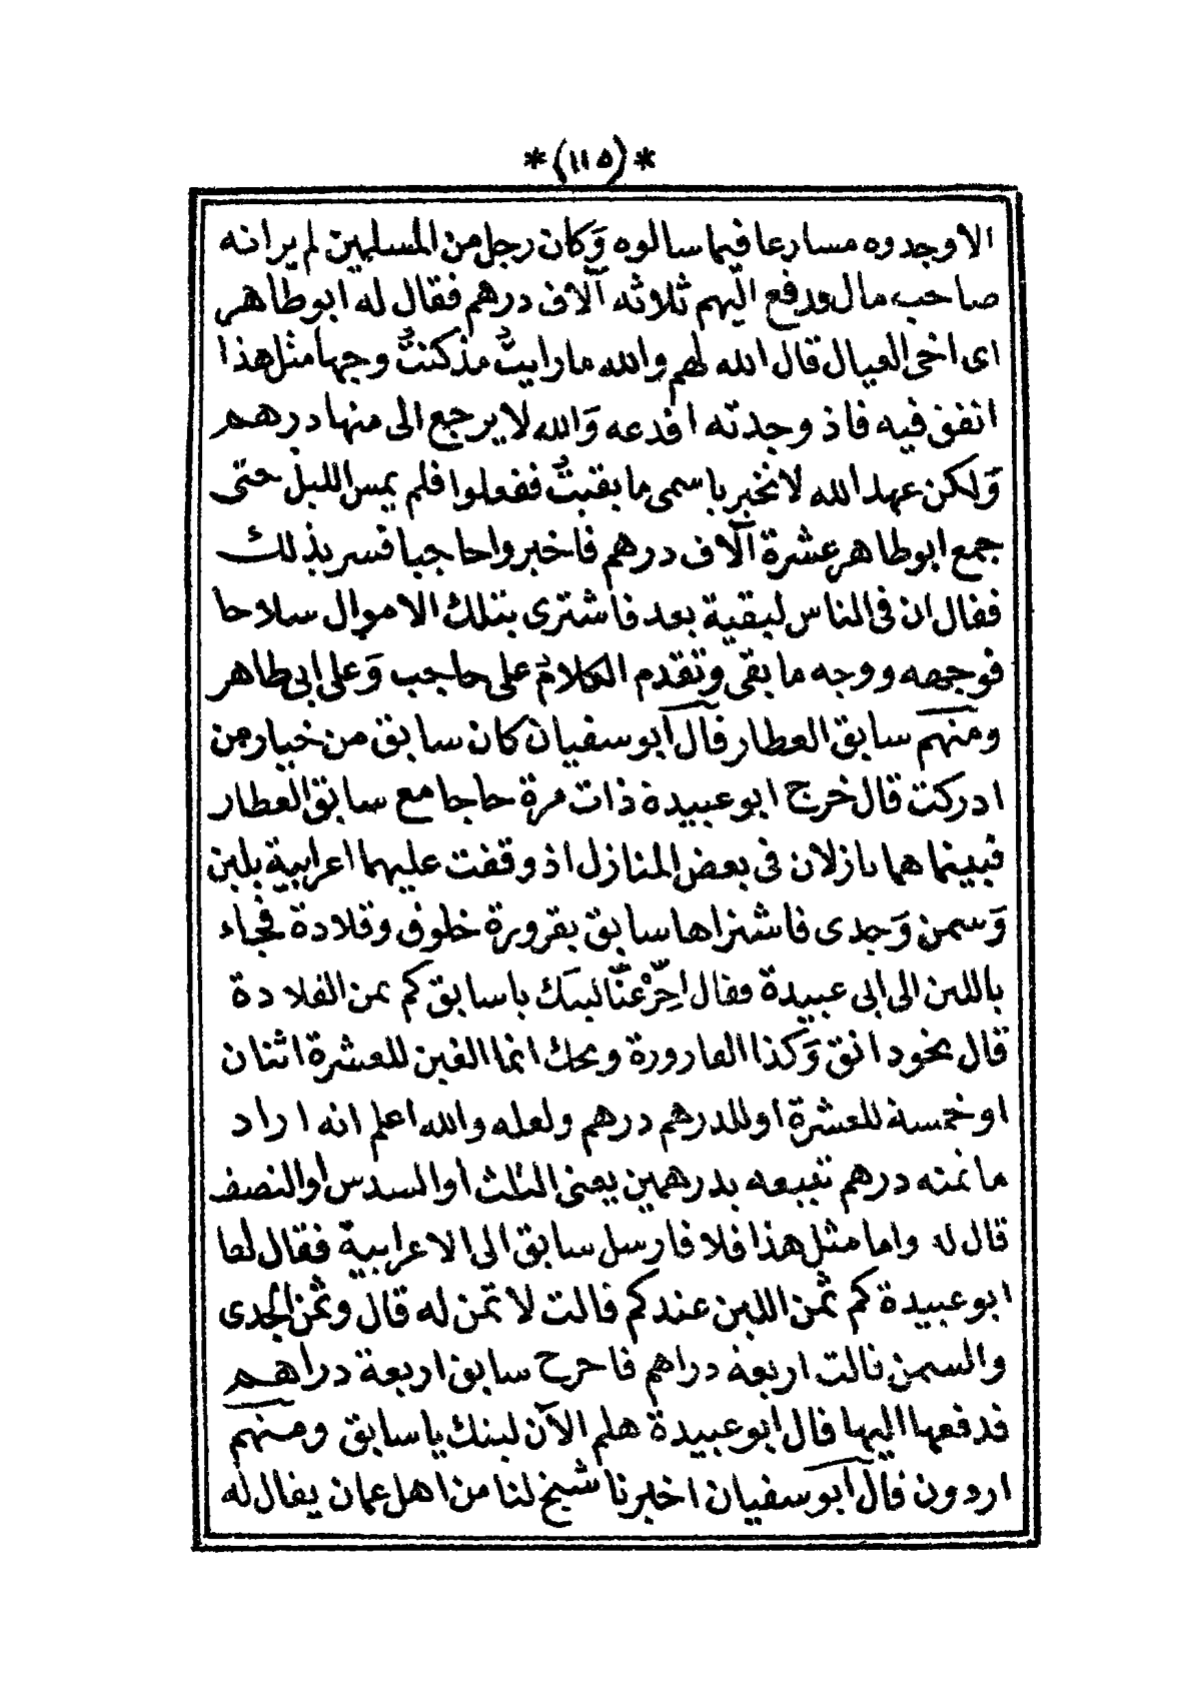 *(١١٥)*
الا وجدوه مسارعا فيما سالوه وَكان رجل من المسلمين لم ير انه
صاحب مال ودفع اليهم ثلاثه آلاف درهم فقال له ابو طاهر
اى اخى العيال قال الله لهم والله ما رايتُ مذكنتُ وجها مثل هذا
انفق فيه فاذ وجدته افدعه وَالله لا يرجع الى منها درهم
وَلكن عهد الله لا تخبر باسمى ما بقيتُ ففعلوا فلم يمس الليل حتى
جمع ابو طاهر عشرة آلاف درهم فاخبروا حاجبا فسر بذلك
فقال ان فى الناس لبقية بعد فاشترى بتلك الاموال سلاحا
فوجهه ووجه ما بقى وتقدم الكلامُ على حاجب وَعلى ابى طاهر
ومنهم سابق العطار قال ابو سفيان كان سابق من خيار من
ادركت قال خرج ابو عبيدة ذات مرة حاجا مع سابق العطار
فبينما هما نازلان فى بعض المنازل اذ وقفت عليهما اعرابية بلبن
وَسمن وَجدى فاشتراها سابق بقرورة خلوق وقلادة فجاء
باللبن الى ابى عبيدة فقال اخِّرْ عنّا لبنك ياسابق كم ثمن القلادة
قال نحو دانق وَكذا القارورة ويحك انما الغبن للعشرة اثنان
او خمسة للعشرة او للدرهم درهم ولعله والله اعلم انه اراد
ما ثمنه درهم تبيعه بدرهمين يعنى الثلث او السدس او النصف
قال له واما مثل هذا فلا فارسل سابق الى الاعرابية فقال لها
ابو عبيدة كم ثمن اللبن عندكم قالت لا ثمن له قال وثمن الجدى
والسمن قالت اربعة دراهم فاخرج سابق اربعة دراهم
فدفعها اليها قال ابو عبيدة هلم الآن لبنك ياسابق ومنهم
اردون قال ابو سفيان اخبرنا شيخ لنا من اهل عمان يقال له